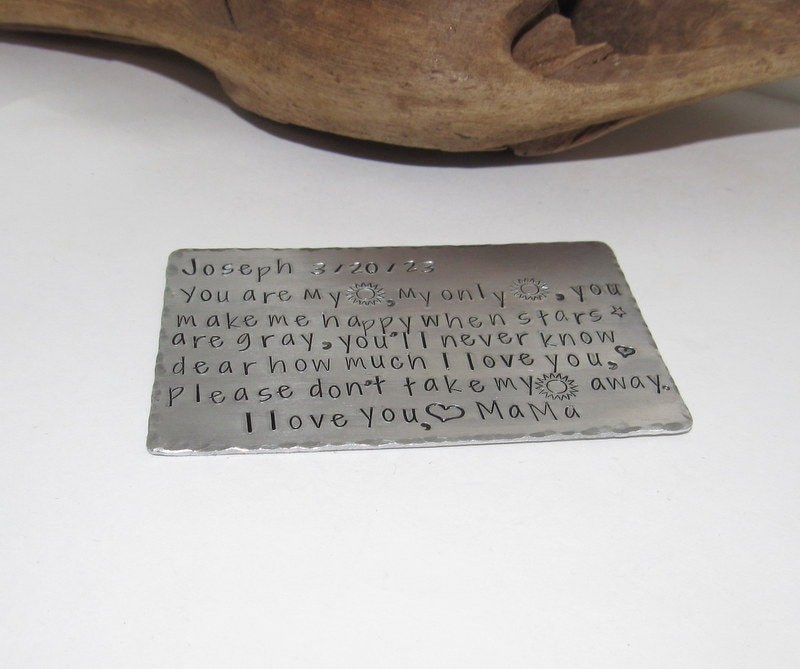 Joseph 3/20/23
You are My ☀, My only ☀, you
make me happy when stars ☆
are gray, you'll never know
dear how much I love you, ♡
please don't take my ☀ away.
I love You, ♡ MaMa